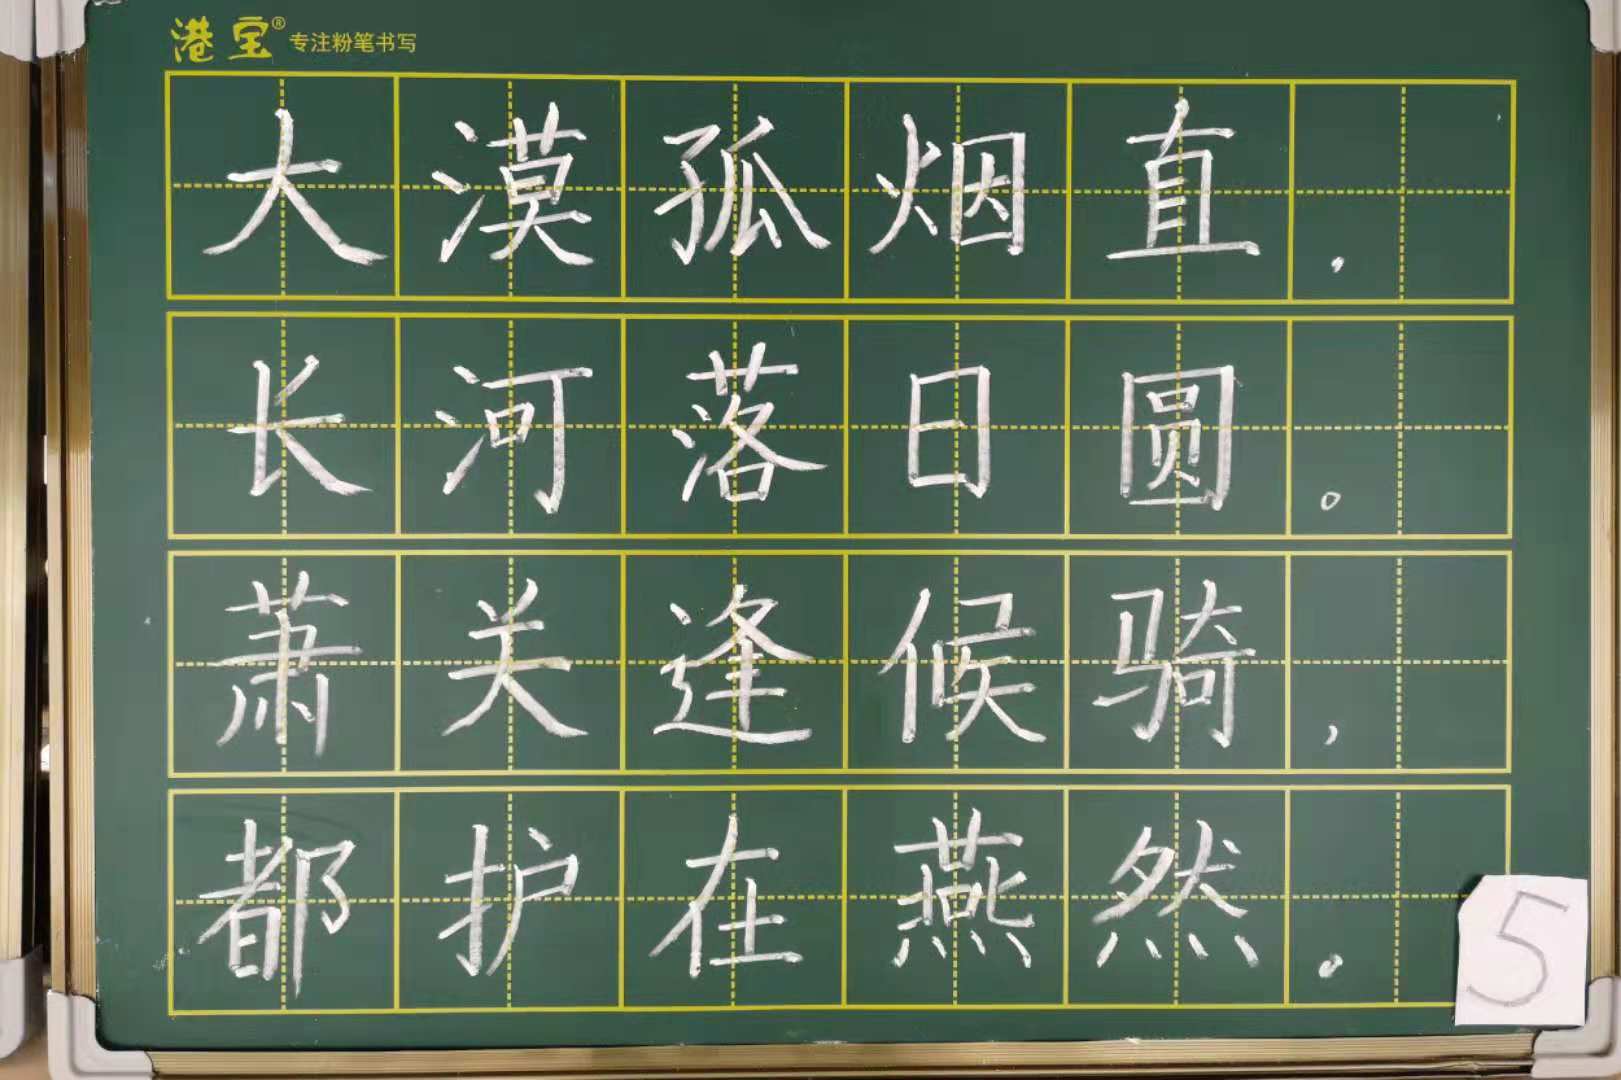 港宝® 专注粉笔书写
大漠孤烟直，
长河落日圆。
萧关逢候骑，
都护在燕然。
5